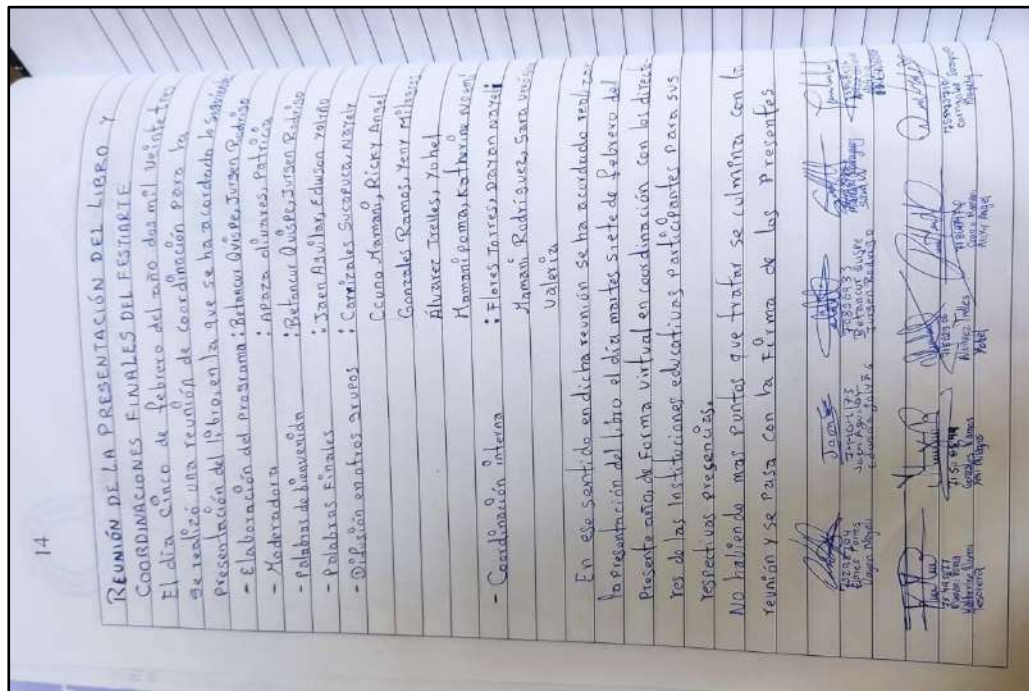 14
REUNIÓN DE LA PRESENTACIÓN DEL LIBRO Y
COORDINACIONES FINALES DEL FESTIARTE
El día cinco de febrero del año dos mil veintetres
se realizó una reunión de coordinación para la
Presentación del libro, en la que se ha acordado lo siguiente
- Elaboración del programa : Betancur Quispe, Jursen Rodrigo
- Moderadora : Apaza Olivares, Patricia
- Palabras de bienvenida : Betancur Quispe, Jursen Rodrigo
- Palabras Finales : Jaen Aguilar, Eduson
- Difisión en otros grupos : Carrizales Sucapuca, Nayely
Ccuno Mamani, Ricky Angel
Gonzales Ramos, Yeny Milagros
Álvarez Trelles, Yohel
Mamani Poma, Katherine Noemí
- Coordinación interna : Flores Torres, Dayan Nayeli
Mamani Rodríguez, Sara
Valeria
En ese sentido en dicha reunión se ha acordado realizar
la presentación del libro el día martes siete de febrero del
Presente año, de Forma virtual en coordinación con los direct-
res de las Instituciones educativas Participantes para sus
respectivas presencias.
No habiendo mas puntos que tratar se culmina con la
reunión y se pasa con la Firma de los Presentes
Flores Torres
Dayan Nayeli
Jaen Aguilar
Betancur Quispe
Jursen Rodrigo
Katherine Noemi
Gonzales Ramos
Alvarez Trelles
Yohel
Ccuno Mamani
Ricky Angel
Nayely